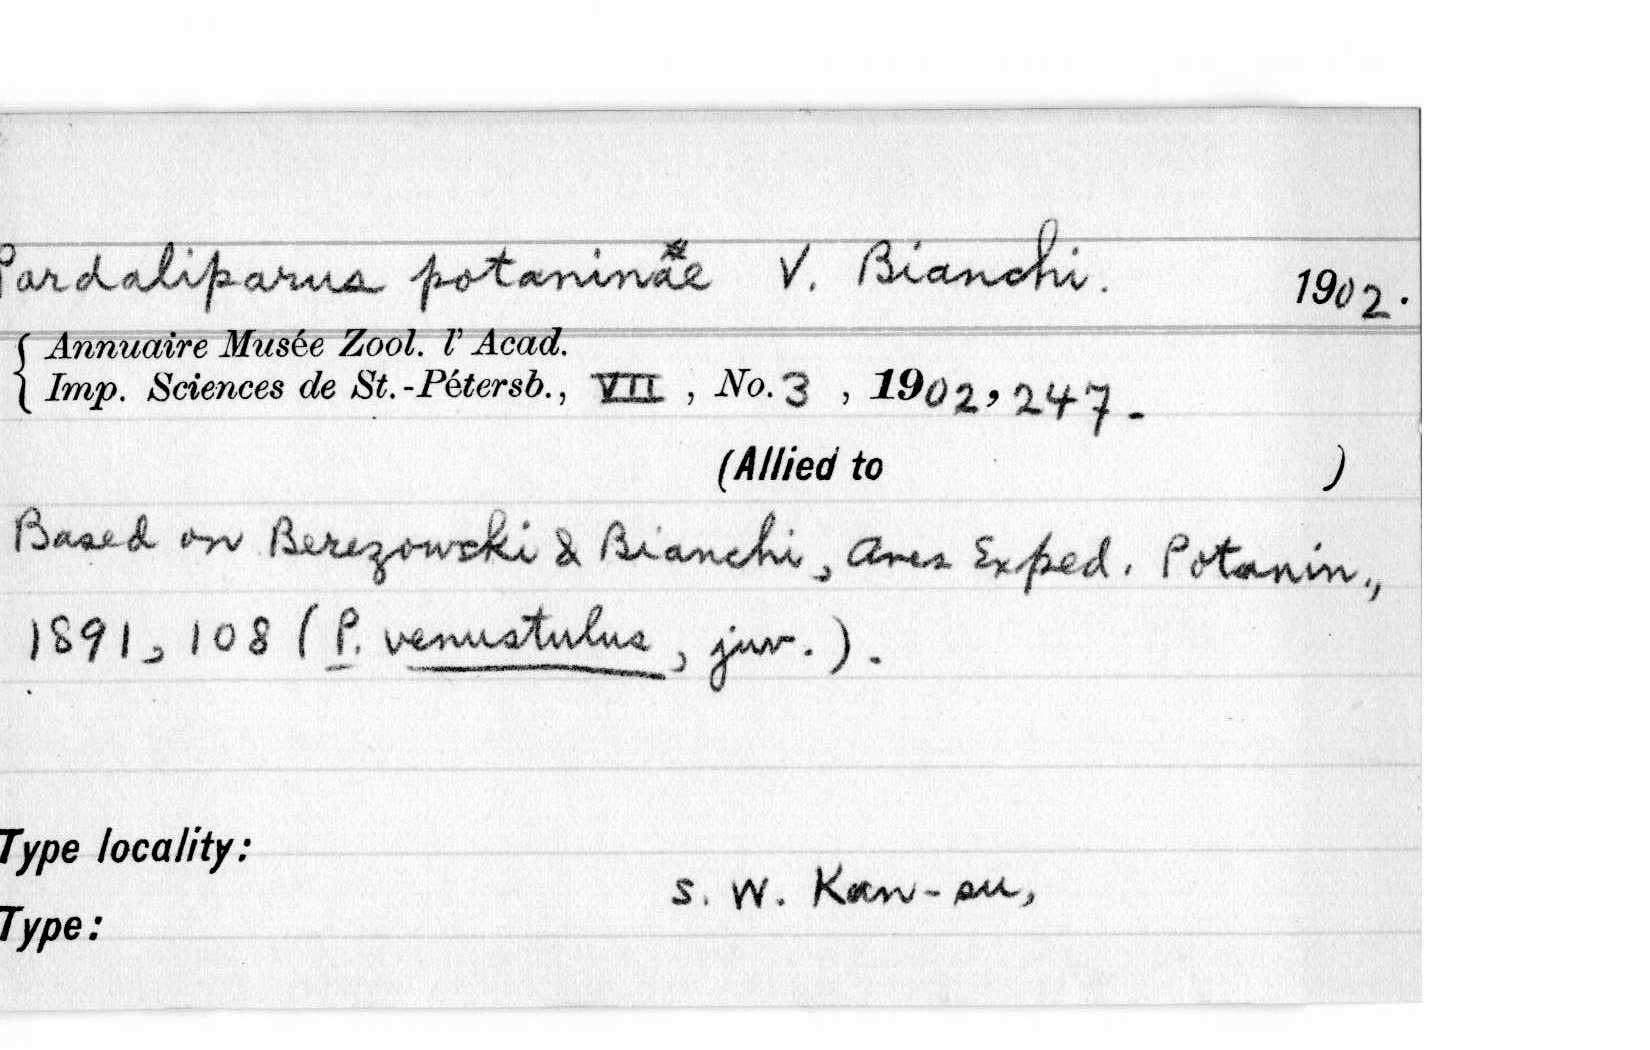 Pardaliparus potaninæ V. Bianchi. 1902.
Annuaire Musée Zool. l' Acad.
Imp. Sciences de St.-Pétersb., VII, No. 3, 1902, 247.
(Allied to )
Based on Berezowski & Bianchi, Aves Exped. Potanin.,
1891, 108 (P. venustulus, juv.).
Type locality:
S. W. Kan-su,
Type: